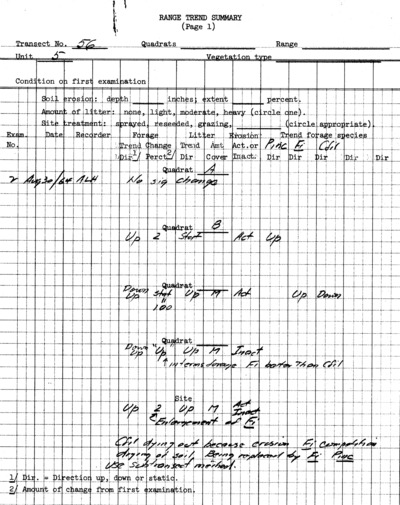 RANGE TREND SUMMARY
(Page 1)
Transect No. 56 Quadrats Range
Unit 5 Vegetation type
Condition on first examination
Soil erosion: depth inches; extent percent.
Amount of litter: none, light, moderate, heavy (circle one).
Site treatment: sprayed, reseeded, grazing, (circle appropriate).
Exam. Date Recorder Forage Litter Erosion Trend forage species
No. Trend Change Trend Amt Act.or Pinc Fi Cdil
Dir 1/ Perct 2/ Dir Cover Inact. Dir Dir Dir Dir Dir
Quadrat A
2 Aug 30/64 ALH No sig change
Quadrat B
Up 2 Stat Act Up
Quadrat
Down
Up Stat Up M Act Up Down
"
100
Quadrat
Down
Up "Up" Up M Inact
↑ in terms forage Fi better Than Cdil
Site
Up 2 Up M Act
Inact
Enlargement of Fi
Cdil dying out because erosion Fi competition
drying of soil. Being replaced by Fi Pinc
Use subtransect method.
1/ Dir. = Direction up, down or static.
2/ Amount of change from first examination.